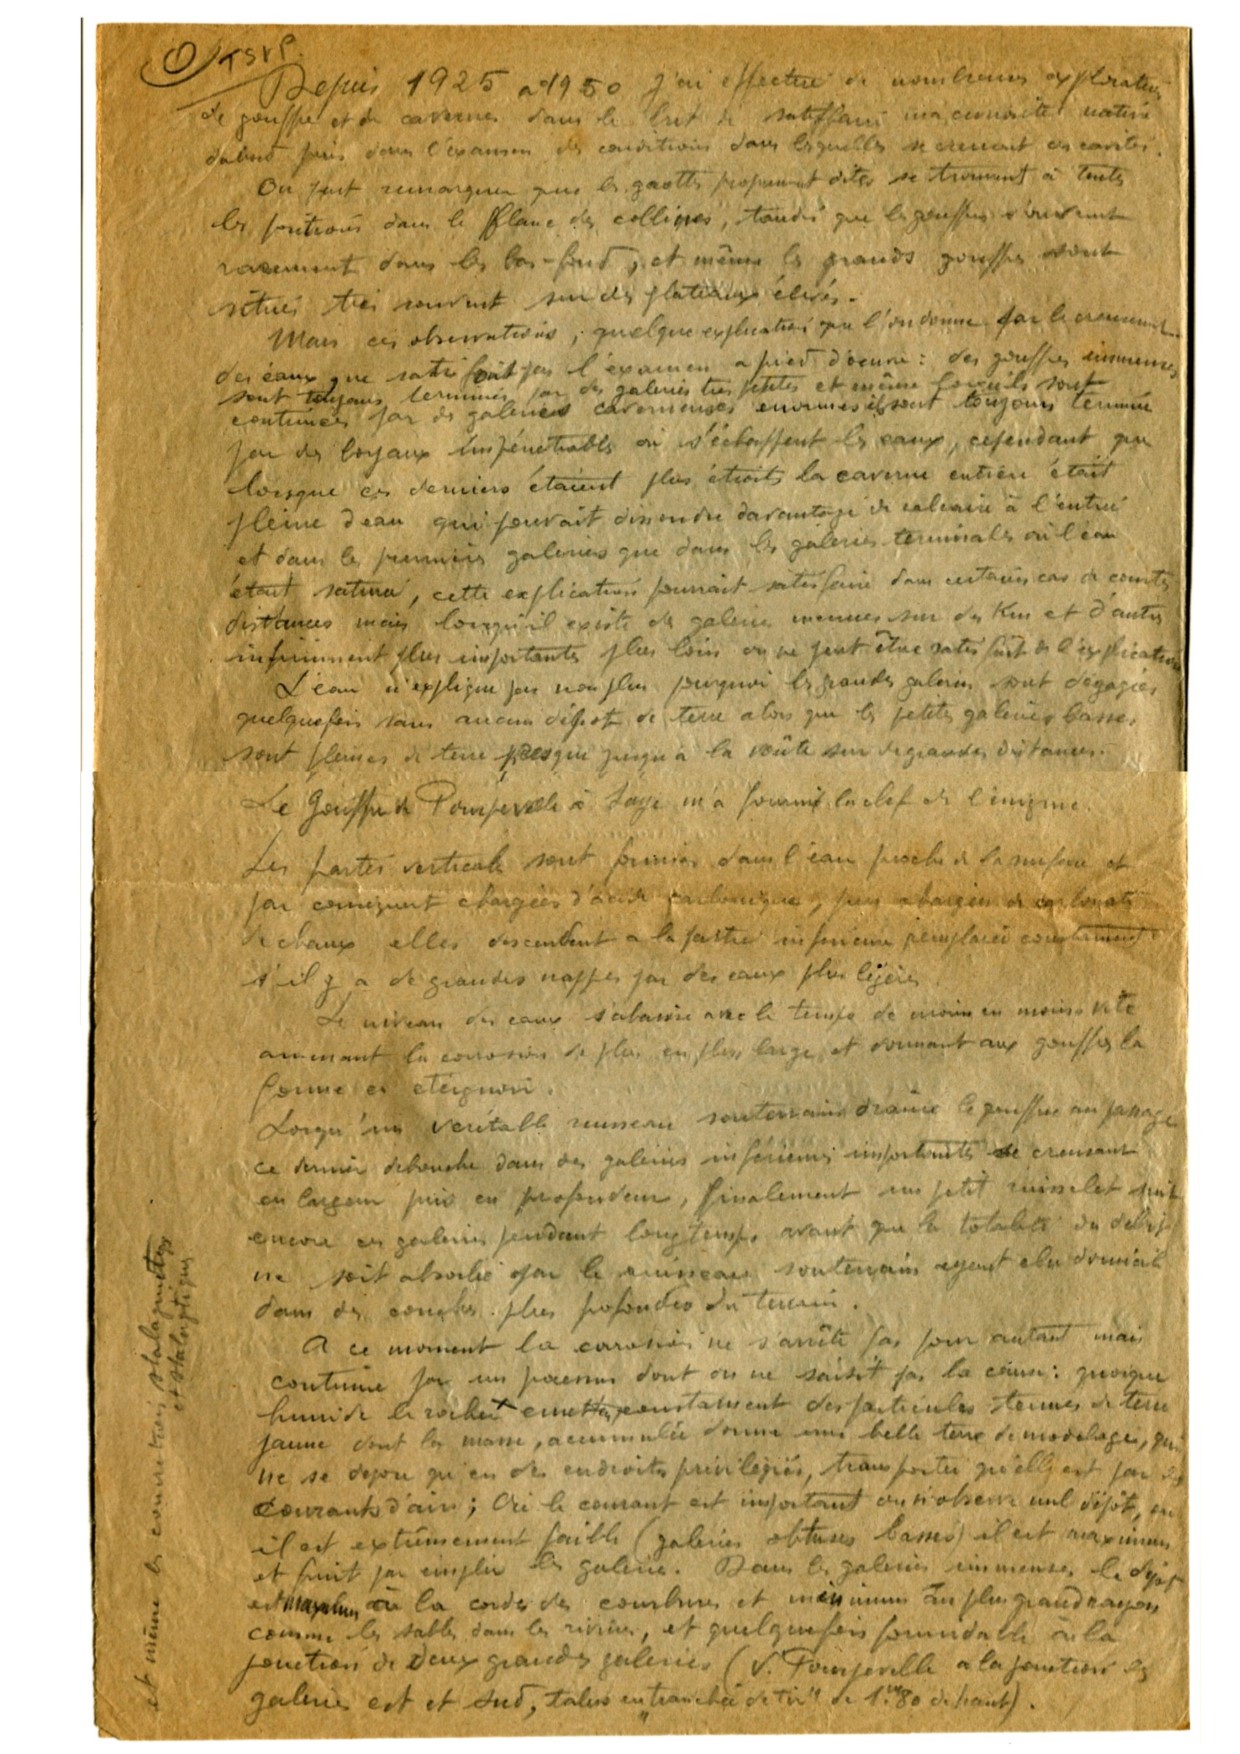 ① TSVP.
Depuis 1925 a 1950 j'ai effectué de nombreuses explorations
de gouffre et de cavernes dans le but de satisfaire ma curiosité native
dabord puis dans l'examen des conditions dans lesquelles se creusent ces cavités.
On peut remarquer que les grottes proprement dites se trouvent à toutes
les positions dans le flanc des collines, tandis que les gouffres s'ouvrent
rarement dans les bas-fond, et même les grands gouffres sont
situés très souvent sur des plateaux élevés.
Mais ces observations, quelque explication que l'on donne par le creusement
des eaux, ne satisfait pas l'examen a pied d'oeuvre : des gouffres immenses
sont toujours terminés par des galeries très petites et même lorsqu'ils sont
continués par des galeries caverneuses enormes ils sont toujours terminés
par des boyaux impénétrables où s'échappent les eaux, cependant que
lorsque ces derniers étaient plus étroits la caverne entière était
pleine d'eau qui pouvait dissoudre davantage de calcaire à l'entrée
et dans les premières galeries que dans les galeries terminales où l'eau
étant saturée, cette explication pourrait satisfaire dans certains cas de courtes
distances mais lorsqu'il existe des galeries menues sur des Km et d'autres
infiniment plus importantes plus loin on ne peut être satisfait de l'explication
L'eau n'explique pas non plus pourquoi les grandes galeries sont dégagées
quelquefois sans aucun dépot de terre alors que les petites galeries basses
sont pleines de terre presque jusqu'a la voûte sur de grandes distances.
Le Gouffre de Pourpevelle à Soye m'a fourni la clef de l'énigme.
Les parties verticales sont formées dans l'eau proche de la surface et
par conséquent chargées d'acide carbonique, puis chargées de carbonate
de chaux elles descendent a la partie inférieure remplacée constamment
s'il y a de grandes nappes par des eaux plus légères
Le niveau des eaux s'abaisse avec le temps de moins en moins vite
amenant la corrosion de plus en plus large et donnant aux gouffres la
forme en éteignoir.
Lorsqu'un véritable ruisseau souterrain draine le gouffre au passage
ce dernier debouche dans des galeries inférieures importantes se creusant
en largeur puis en profondeur, finalement un petit ruisselet suit
encore ces galeries pendant longtemps avant que la totalité du débit
ne soit absorbé par le ruisseau souterrain ayant élu domicile
dans des couches plus profondes du terrain.
A ce moment la corrosion ne s'arrête pas pour autant mais
continue par un processus dont on ne saisit pas la cause : quoique
humide le rocher x emet constament des particules ternes de terre
jaune dont la masse, accumulée donne une belle terre de modelage, qui
ne se dépose qu'en des endroits privilégiés, transportée qu'elle est par des
courants d'air; Où le courant est important on n'observe nul dépôt, où
il est extrêmement faible (galeries obtuses basses) il est maximum
et finit par emplir les galerie. Dans les galeries immenses le dépôt
est maximum à la corde des courbures et minimum au plus grand rayon
comme les sables dans les rivières, et quelquefois formidable à la
jonction de deux grandes galeries (V. Pourpevelle a la jonction des
galeries est et sud, talus en "tranchée de tir" de 1m80 de haut).
et même les concretions stalagmitiqes
et stalagtiques